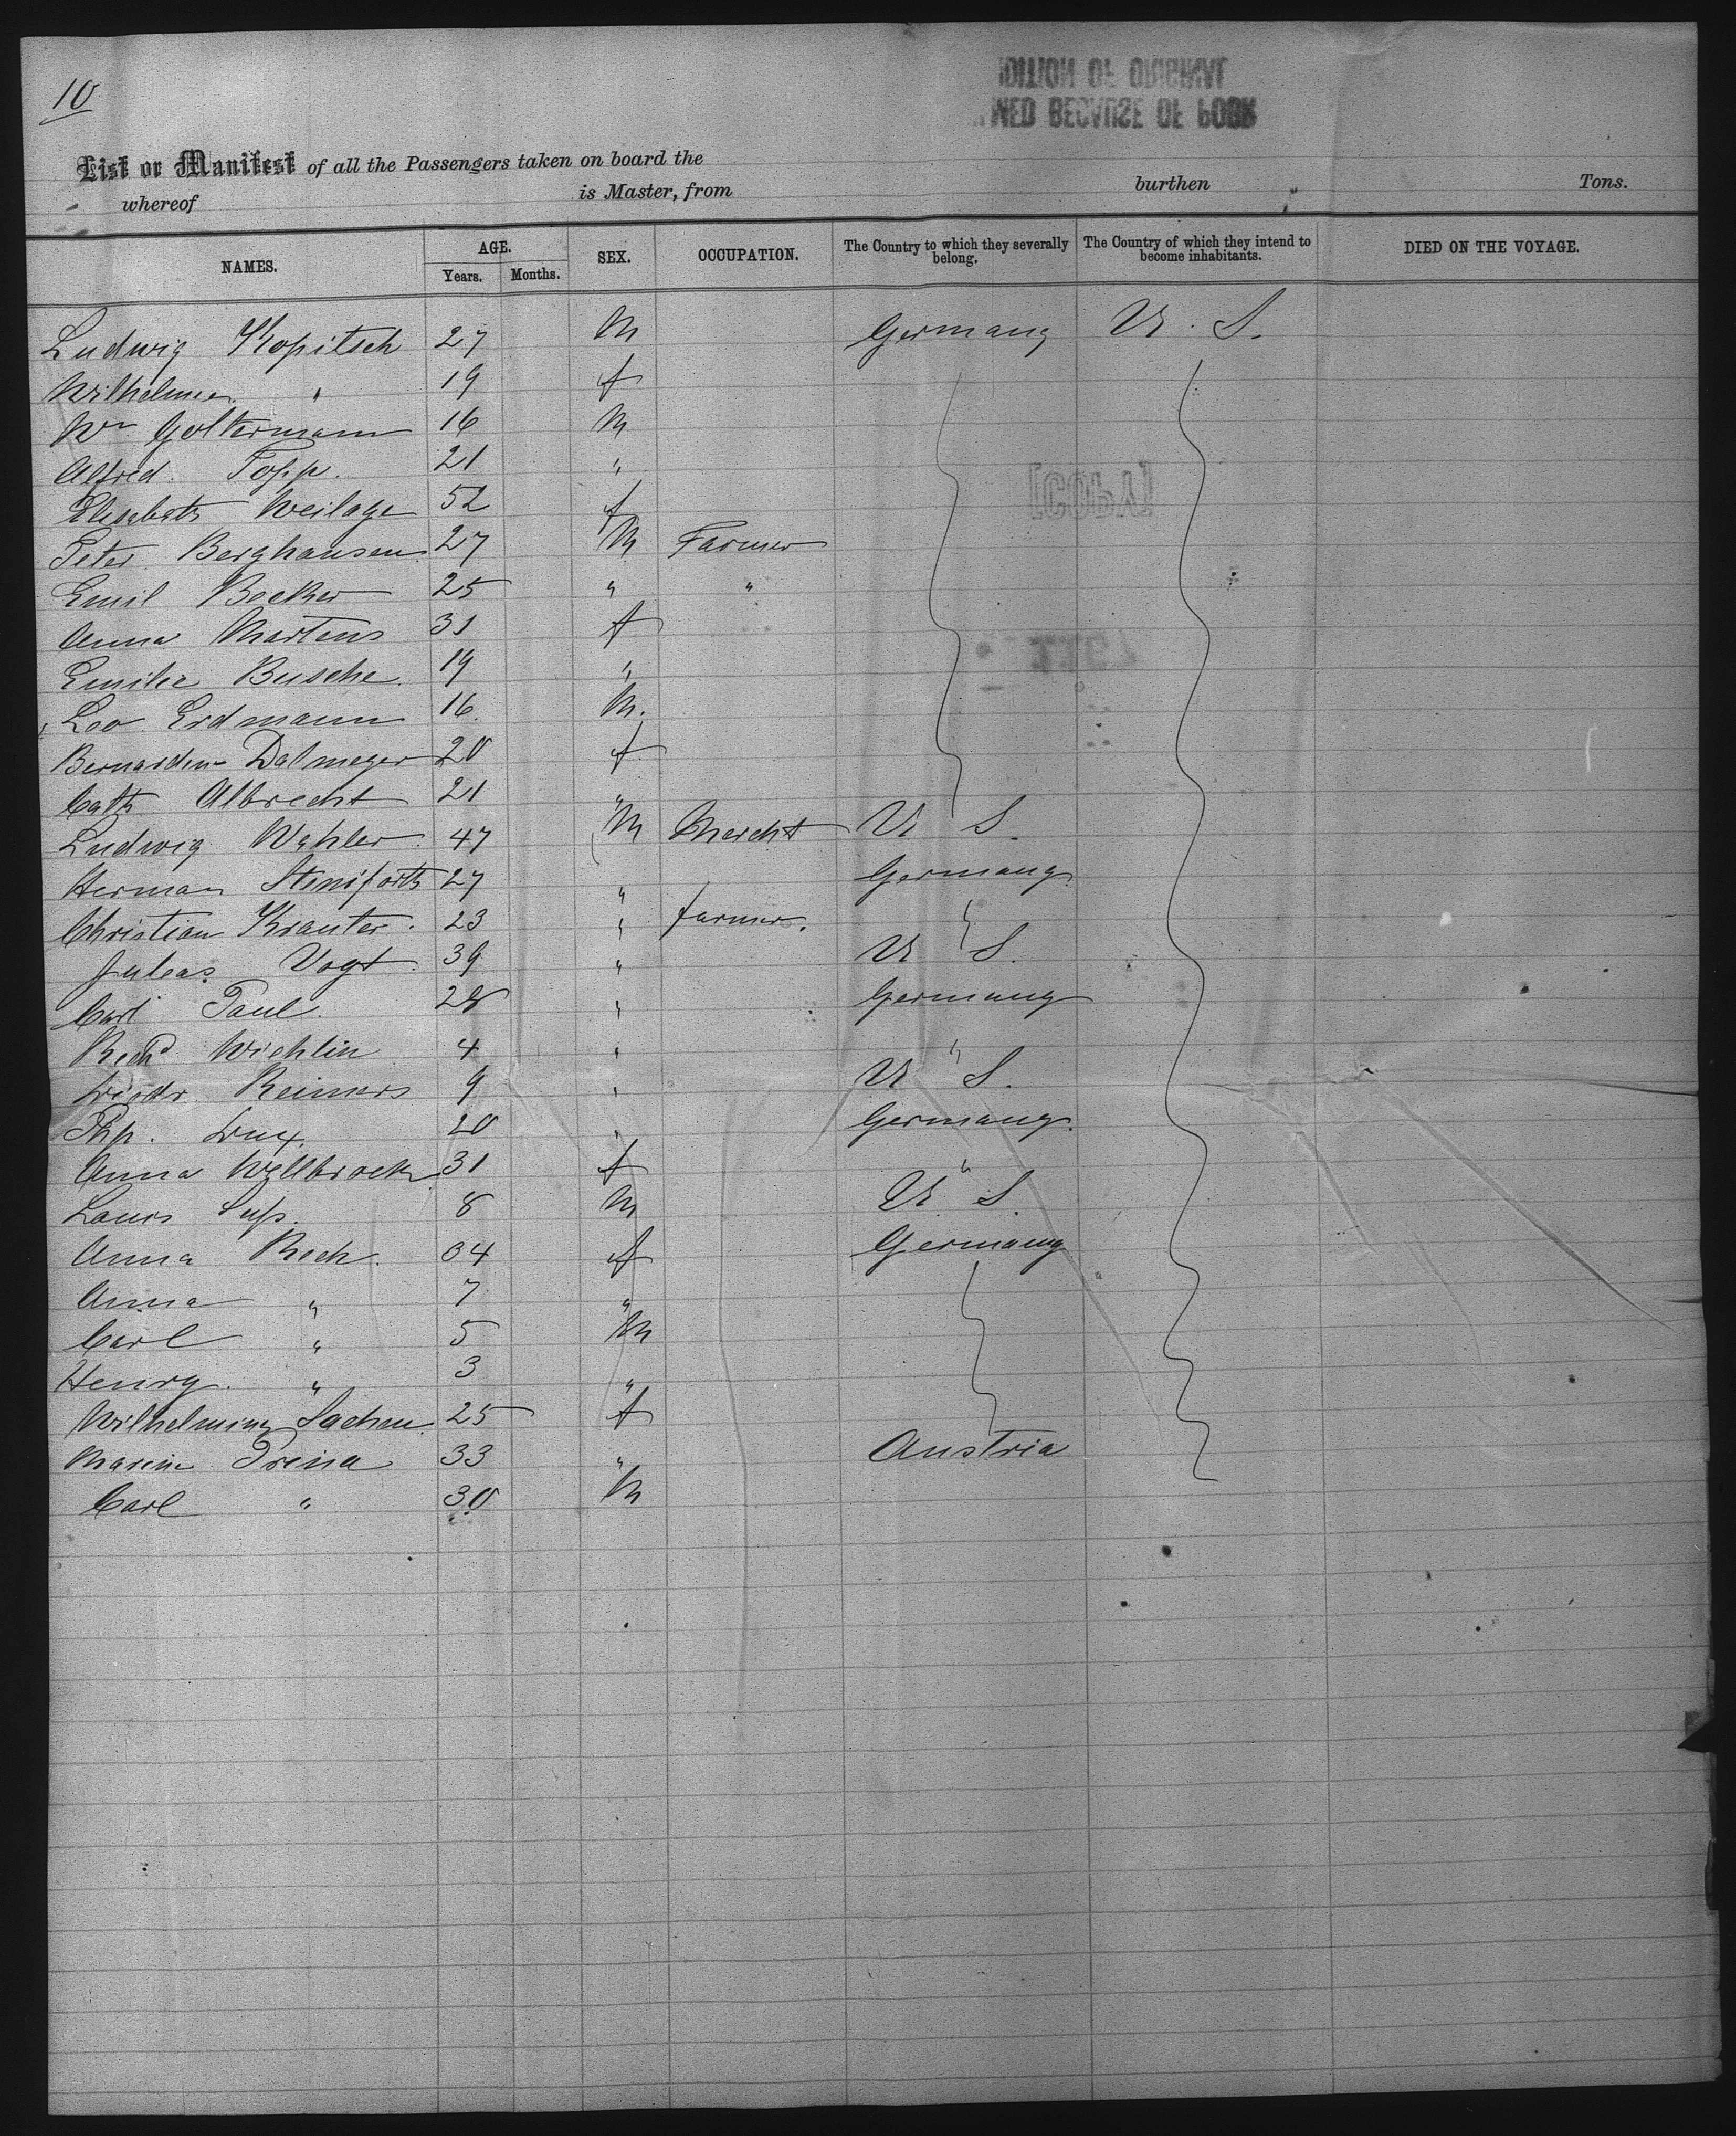 10
List or Manifest of all the Passengers taken on board the
whereof is Master, from burthen Tons.
NAMES. AGE. Years. Months. SEX. OCCUPATION. The Country to which they severally belong. The Country of which they intend to become inhabitants. DIED ON THE VOYAGE.
Ludwig Kopitsch 27 M Germany U. S.
Wilhelmine " 19 f
Wm Goltermann 16 M
Alfred Topp. 21 "
Elisabeth Weilage 52 f
Peter Berghausen 27 M Farmer
Emil Becker 25 " "
Anna Martens 31 f
Emilie Busche. 19 "
Leo Erdmann 16. M.
Bernardine Dalmeyer 20 f
Cath Albrecht 21 "
Ludwig Wehler 47 M Mercht U S.
Herman Steniforth 27 " Germany.
Christian Krauter. 23 " farmer. "
Juleas Vogt. 39 " U S.
Carl Paul. 28 " Germany
Rechd Wichlin 4 " "
Diedr Reimers 9 " U S.
Php. Dux. 20 " Germany.
Anna Wellbrock 31 f "
Louis 8 M U. S.
Anna Rech. 34 f Germany
Anna " 7 "
Carl " 5 M
Henry. " 3 "
Wilhelmina Sachen. 25 f
Marine Prina 33 " Austria
Carl " 30 M